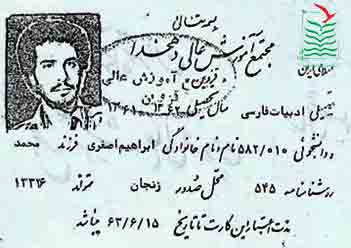 مجتمع آموزش عالی دهخدا
قزوین
آموزش عالی
قزوین
سال تحصیلی ۱۳۶۲-۱۳۶۱
ادبیات فارسی
دانشجوئی ۵۸۲/۰۱۰ نام و نام خانوادگی ابراهیم اصغری فرزند محمد
شناسنامه ۵۴۵ محل صدور زنجان تولد ۱۳۳۶
مدت اعتبار این کارت تا تاریخ ۶۳/۶/۱۵ میباشد